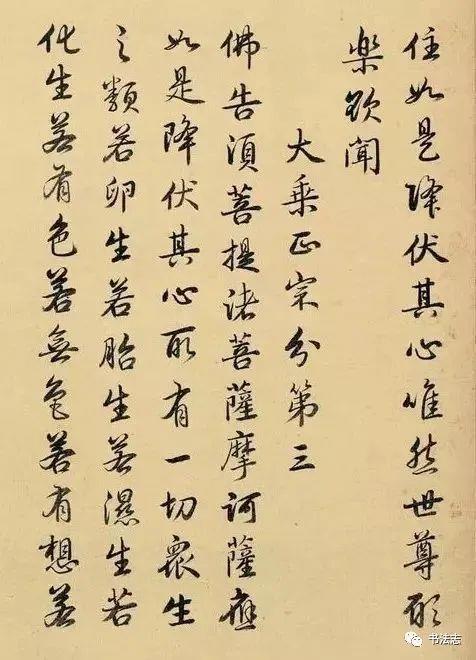 住如是降伏其心唯然世尊願
樂欲聞
大乘正宗分第三
佛告須菩提諸菩薩摩訶薩應
如是降伏其心所有一切衆生
之類若卵生若胎生若濕生若
化生若有色若無色若有想若
书法志